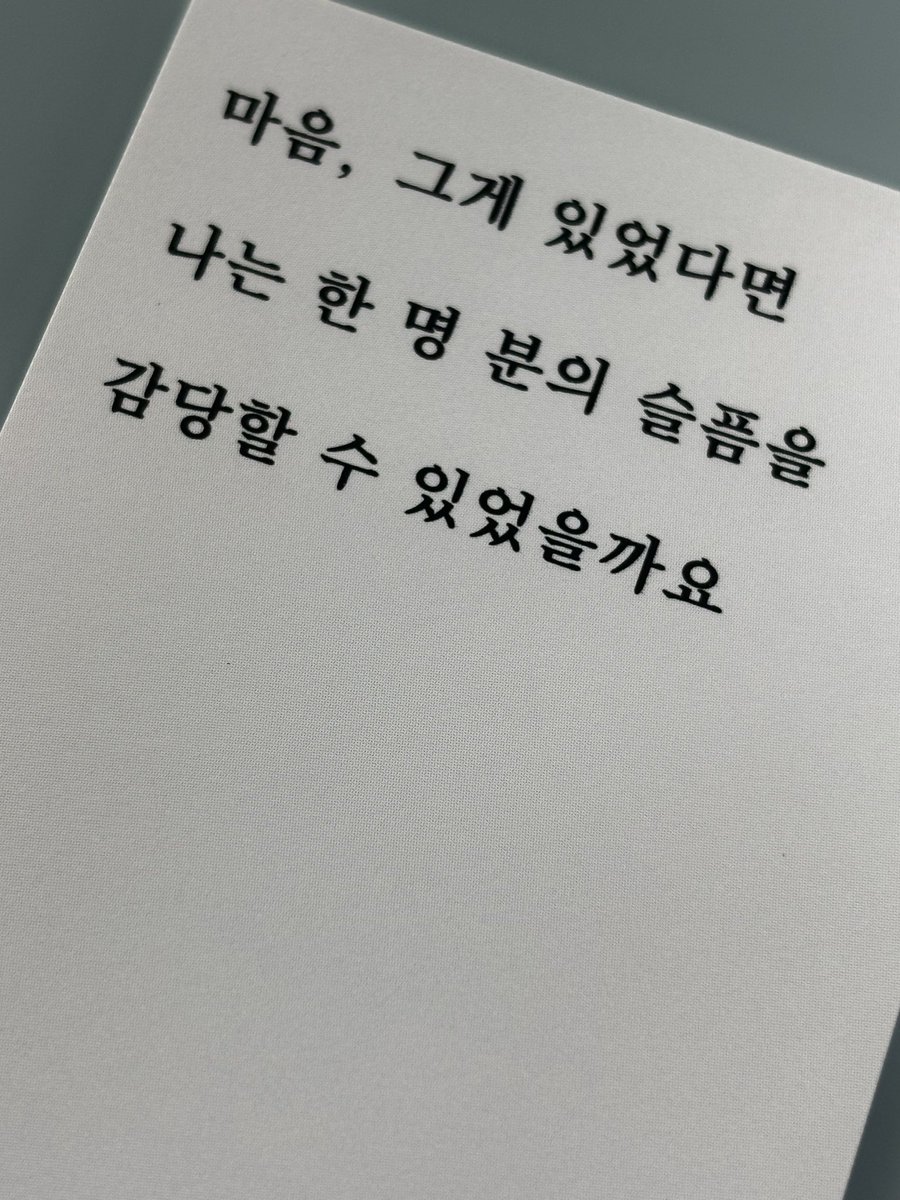 마음, 그게 있었다면
나는 한 명 분의 슬픔을
감당할 수 있었을까요